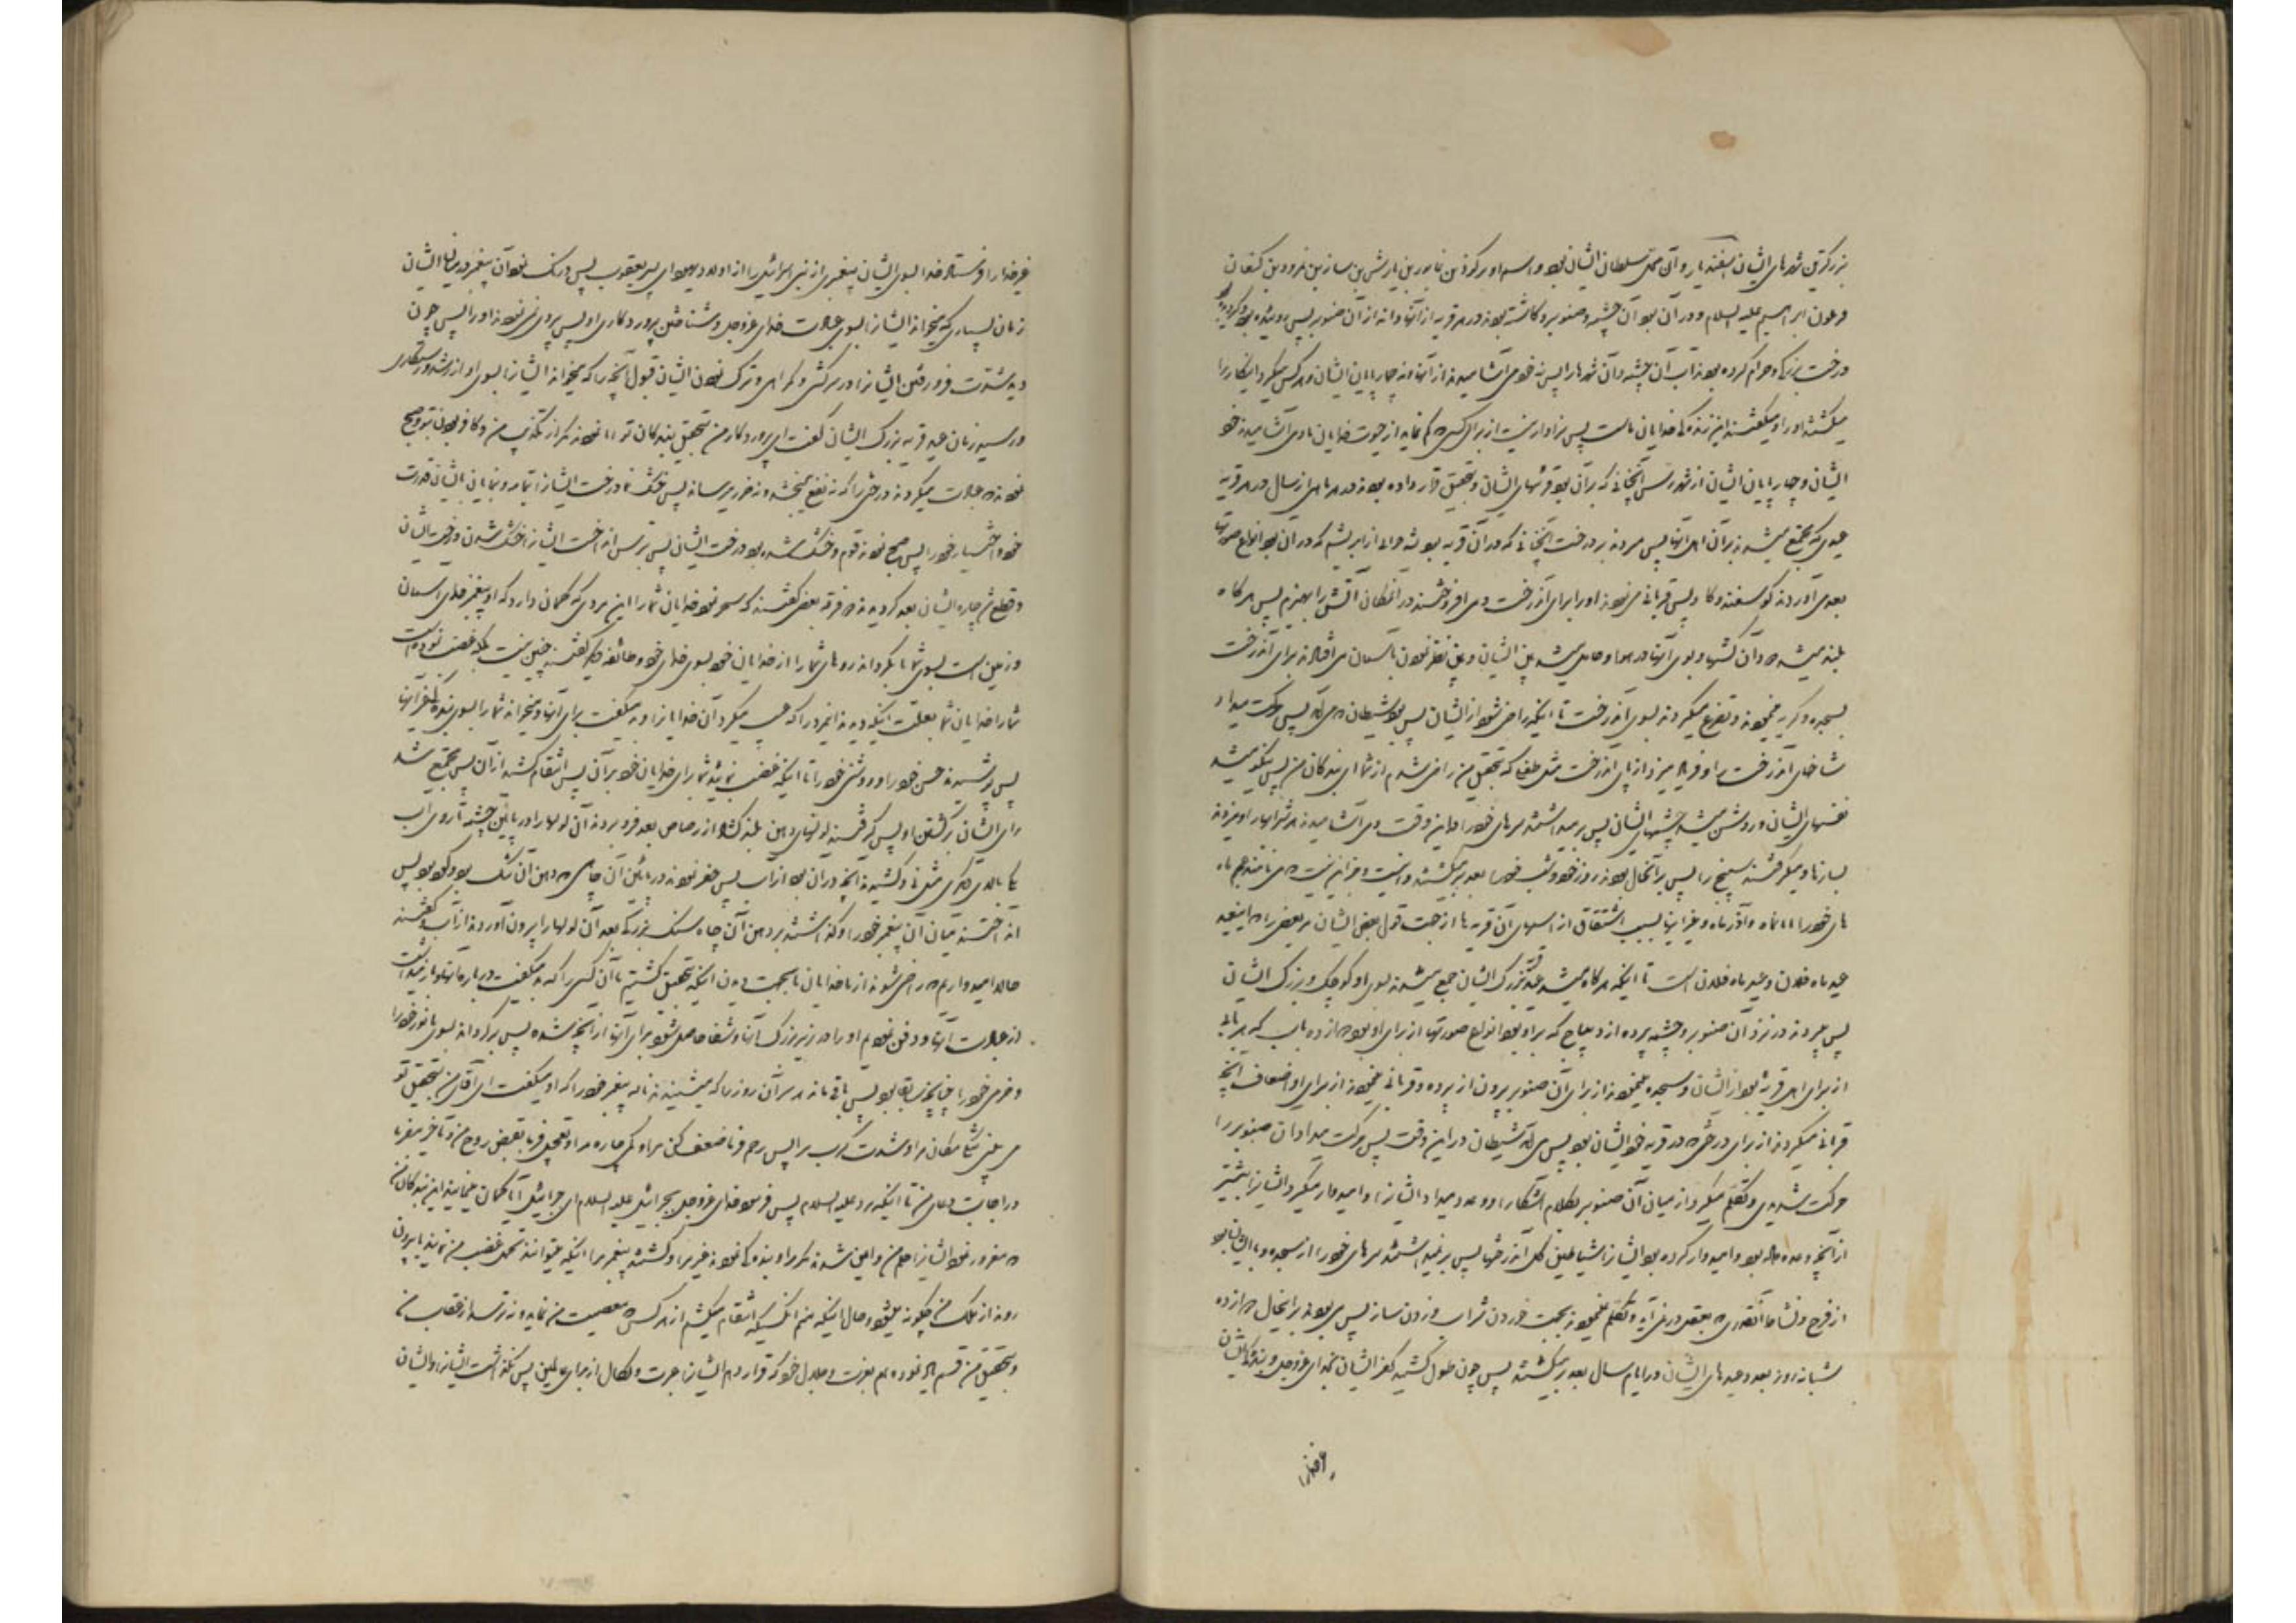 بزرکترین شهرهای ایشان اسفندیار و آن محل سلطان ایشان بود و اسم او ترکوذ بن غابور بن یارش بن سازن بن نمرود بن کنعان
فرعون ابراهیم علیه السلام و در آن بود آن چشمه و صنوبر و کاشته بودند در هر قریه از آنها دانه از آن صنوبر پس روئیده بود و کردیده بود
درخت بزرک و حرام کرده بودند آب آن چشمه و آن نهرها را پس نه خود می آشامیدند از آنها و نه چارپایان ایشان و هر کس میکرد اینکار را
میکشتند او را و میکفتند این زندکی خدایان ماست پس سزاوار نیست از برای کسی که کم نماید از حیوة خدایان ما و می آشامیدند خود
ایشان و چارپایان ایشان از نهر رس آنچنانی که بر آن بود قریهای ایشان و بتحقیق قرار داده بودند در هر ماهی از سال در هر قریه
عیدی که مجتمع میشدند بر آن اهل آنها پس میزدند بر درخت آنچنانی که در آن قریه بود پشه خوانی از ابریشم که در آن بود انواع صورتها
بعد می آوردند کوسفند و کاو پس قربانی می نمودند او را برای آن درخت و می افروختند در آنمکان آتش را بهیزم پس هرکاه
بلند میشد دود آن کشتها و بوی آنها در هوا و حایل میشد بین ایشان و بین نظر نمودن بآسمان می افتادند برای آن درخت
بسجده و کریه مینمودند و تضرع میکردند بسوی آن درخت تا اینکه راضی شود از ایشان پس بود شیطان که می آمد پس حرکت میداد
شاخهای آن درخت را و فریاد میزد از پای آن درخت مثل طفل که بتحقیق من راضی شدم از شما ای بندکان من پس نیکو میشد
نفسهای ایشان و روشن میشد چشمهای ایشان پس برمیداشتند سرهای خود را در این وقت و می آشامیدند شرابها را و میزدند
سازها و میکرفتند سنج را پس بر آنحال بودند روز خود و شب خود را بعد برمیکشتند
های خود را ابانماه و آذرماه و غیر اینها بسبب اشتقاق از اسمهای آن قریه ها از جهت قول بعض ایشان مر بعضی را که این عید
عید ماه فلان و عید ماه فلان است تا اینکه هرکاه میشد عید قریه بزرک ایشان جمع میشدند بسوی او کوچک و بزرک ایشان
پس میزدند در نزد آن صنوبر و چشمه پرده از دیباج که بر او بود انواع صورتها از برای او بود دوازده باب که هر بابی
از برای اهل قریه بود از ایشان و سجده مینمودند از برای آن صنوبر بیرون از پرده و قربانی مینمودند از برای او اضعاف آنچه
قربانی میکردند از برای درختی که در قریه خود ایشان بود پس می آمد شیطان در این وقت پس حرکت میداد آن صنوبر را
حرکت شدیدی و تکلم میکرد از میان آن صنوبر بکلام آشکارا و وعده میداد ایشان را و امیدوار میکرد ایشان را بیشتر
از آنچه وعده داده بود و امیدوار کرده بود ایشان را شیاطین کل آن درختها پس برمیداشتند سرهای خود را از سجده و با ایشان بود
از فرح و نشاط آنقدری که بعقل در نمی آید و تکلم نمینمودند بجهت خوردن شراب و زدن ساز پس می بودند بر اینحال دوازده
شبانه روز بعدد عیدهای ایشان در ایام سال بعد برمیکشتند پس چون طول کشید کفر ایشان بخدای عزوجل و بندکی ایشان
غیر خدا را
غیر خدا را فرستاد خدا بسوی ایشان پیغمبری از بنی اسرائیل را از اولاد یهودای پسر یعقوب پس درنک نمود آن پیغمبر در میان ایشان
زمان بسیاری که میخواند ایشان را بسوی عبادت خدای عزوجل و شناختن پروردکاری او پس پیروی نمی نمودند او را پس چون
دید شدت فرو رفتن ایشان را در سرکشی و کمراهی و ترک نمودن ایشان قبول آنچه را که میخواند ایشان را بسوی او از رشد و رستکاری
و رسید زمان عید قریه بزرک ایشان کفت ای پروردکار من بتحقیق بندکان تو ابا نمودند مکر از تکذیب من و کافر بودن بتو و صبح
نمودند که عبادت میکردند درختی را که نه نفع میبخشد و نه ضرر میرساند پس خشک نما درخت ایشان را تماما و بنمایان بایشان قدرت
خود و اختیار خود را پس صبح نمودند قوم و خشک شده بود درخت ایشان پس بترس انداخت ایشان را خشک شدن درخت ایشان
و قطع شد چاره ایشان بعد کردیدند دو فرقه بعضی کفتند که سحر نمود خدایان شما را این مردی که کمان دارد که او پیغمبر خدای آسمان
و زمین است بسوی شما تا بکرداند روهای شما را از خدایان خود بسوی خدای خود و طائفه دیکر کفتند چنین نیست بلکه غضب نموده است
شما را خدایان شما بعلت اینکه دیدند اینمرد را که عیب میکرد آن خدایان را و بد میکفت برای آنها و میخواند شما را بسوی بندکی غیر آنها
پس پوشیدند حسن خود را و روشنی خود را تا اینکه غضب نمائید شما برای خدایان خود بر آن پس انتقام کشید از آن پس مجتمع شد
رای ایشان بر کشتن او پس کرفتند لولهای دهن بلند کشاد از رصاص بعد فرو بردند آن لولها را در پائین چشمه تا روی آب
یکی بالای دیکری مثل نی و کشیدند آنچه در آن بود از آب پس حفر نمودند در پائین آن چاهی که دهن آن تنک بود و کود بود پس
انداختند میان آن پیغمبر خود را و کذاشتند بر دهن آن چاه سنک بزرکی بعد آن لولها را بیرون آوردند از آب و کفتند
حالا امیدواریم که راضی شوند از ما خدایان ما بجهت دیدن اینکه بتحقیق کشتیم ما آن کسی را که بد میکفت درباره آنها و باز میداشت
از عبادت آنها و دفن نمودیم او را در زیر بزرک آنها و شفا حاصل شود برای آنها از آنچه شده پس برکردانند بسوی ما نور خود را
و خرمی خود را چنانچه سابقا بود پس باقی ماندند در سر آن روز را که میشنیدند ناله پیغمبر خود را که او میکفت ای آقای من بتحقیق تو
می بینی تنکی مکان مرا و شدت کرب مرا پس رحم فرما ضعف کن مرا و کمی چاره مرا و تعجیل فرما بقبض روح من و تاخیر مفرما
در اجابت دعای من تا اینکه مرد علیه السلام پس فرمود خدای عزوجل بجبرائیل علیه السلام ای جبرائیل آیا کمان مینمایند این بندکان من
که مغرور نمود ایشان را حلم من و ایمن شدند مکر مرا و بندکی نمودند غیر مرا و کشتند پیغمبر مرا اینکه میتوانند تحمل غضب من نمایند یا بیرون
روند از ملک من چکونه میشود و حال اینکه منم آنکسیکه انتقام میکشم از هر کس که معصیت من نماید و نترسد از عقاب من
و بتحقیق من قسم یاد نموده ام بعزت و جلال خود که قرار دهم ایشان را عبرت و نکال از برای عالمین پس نکذاشت ایشان را و ایشان